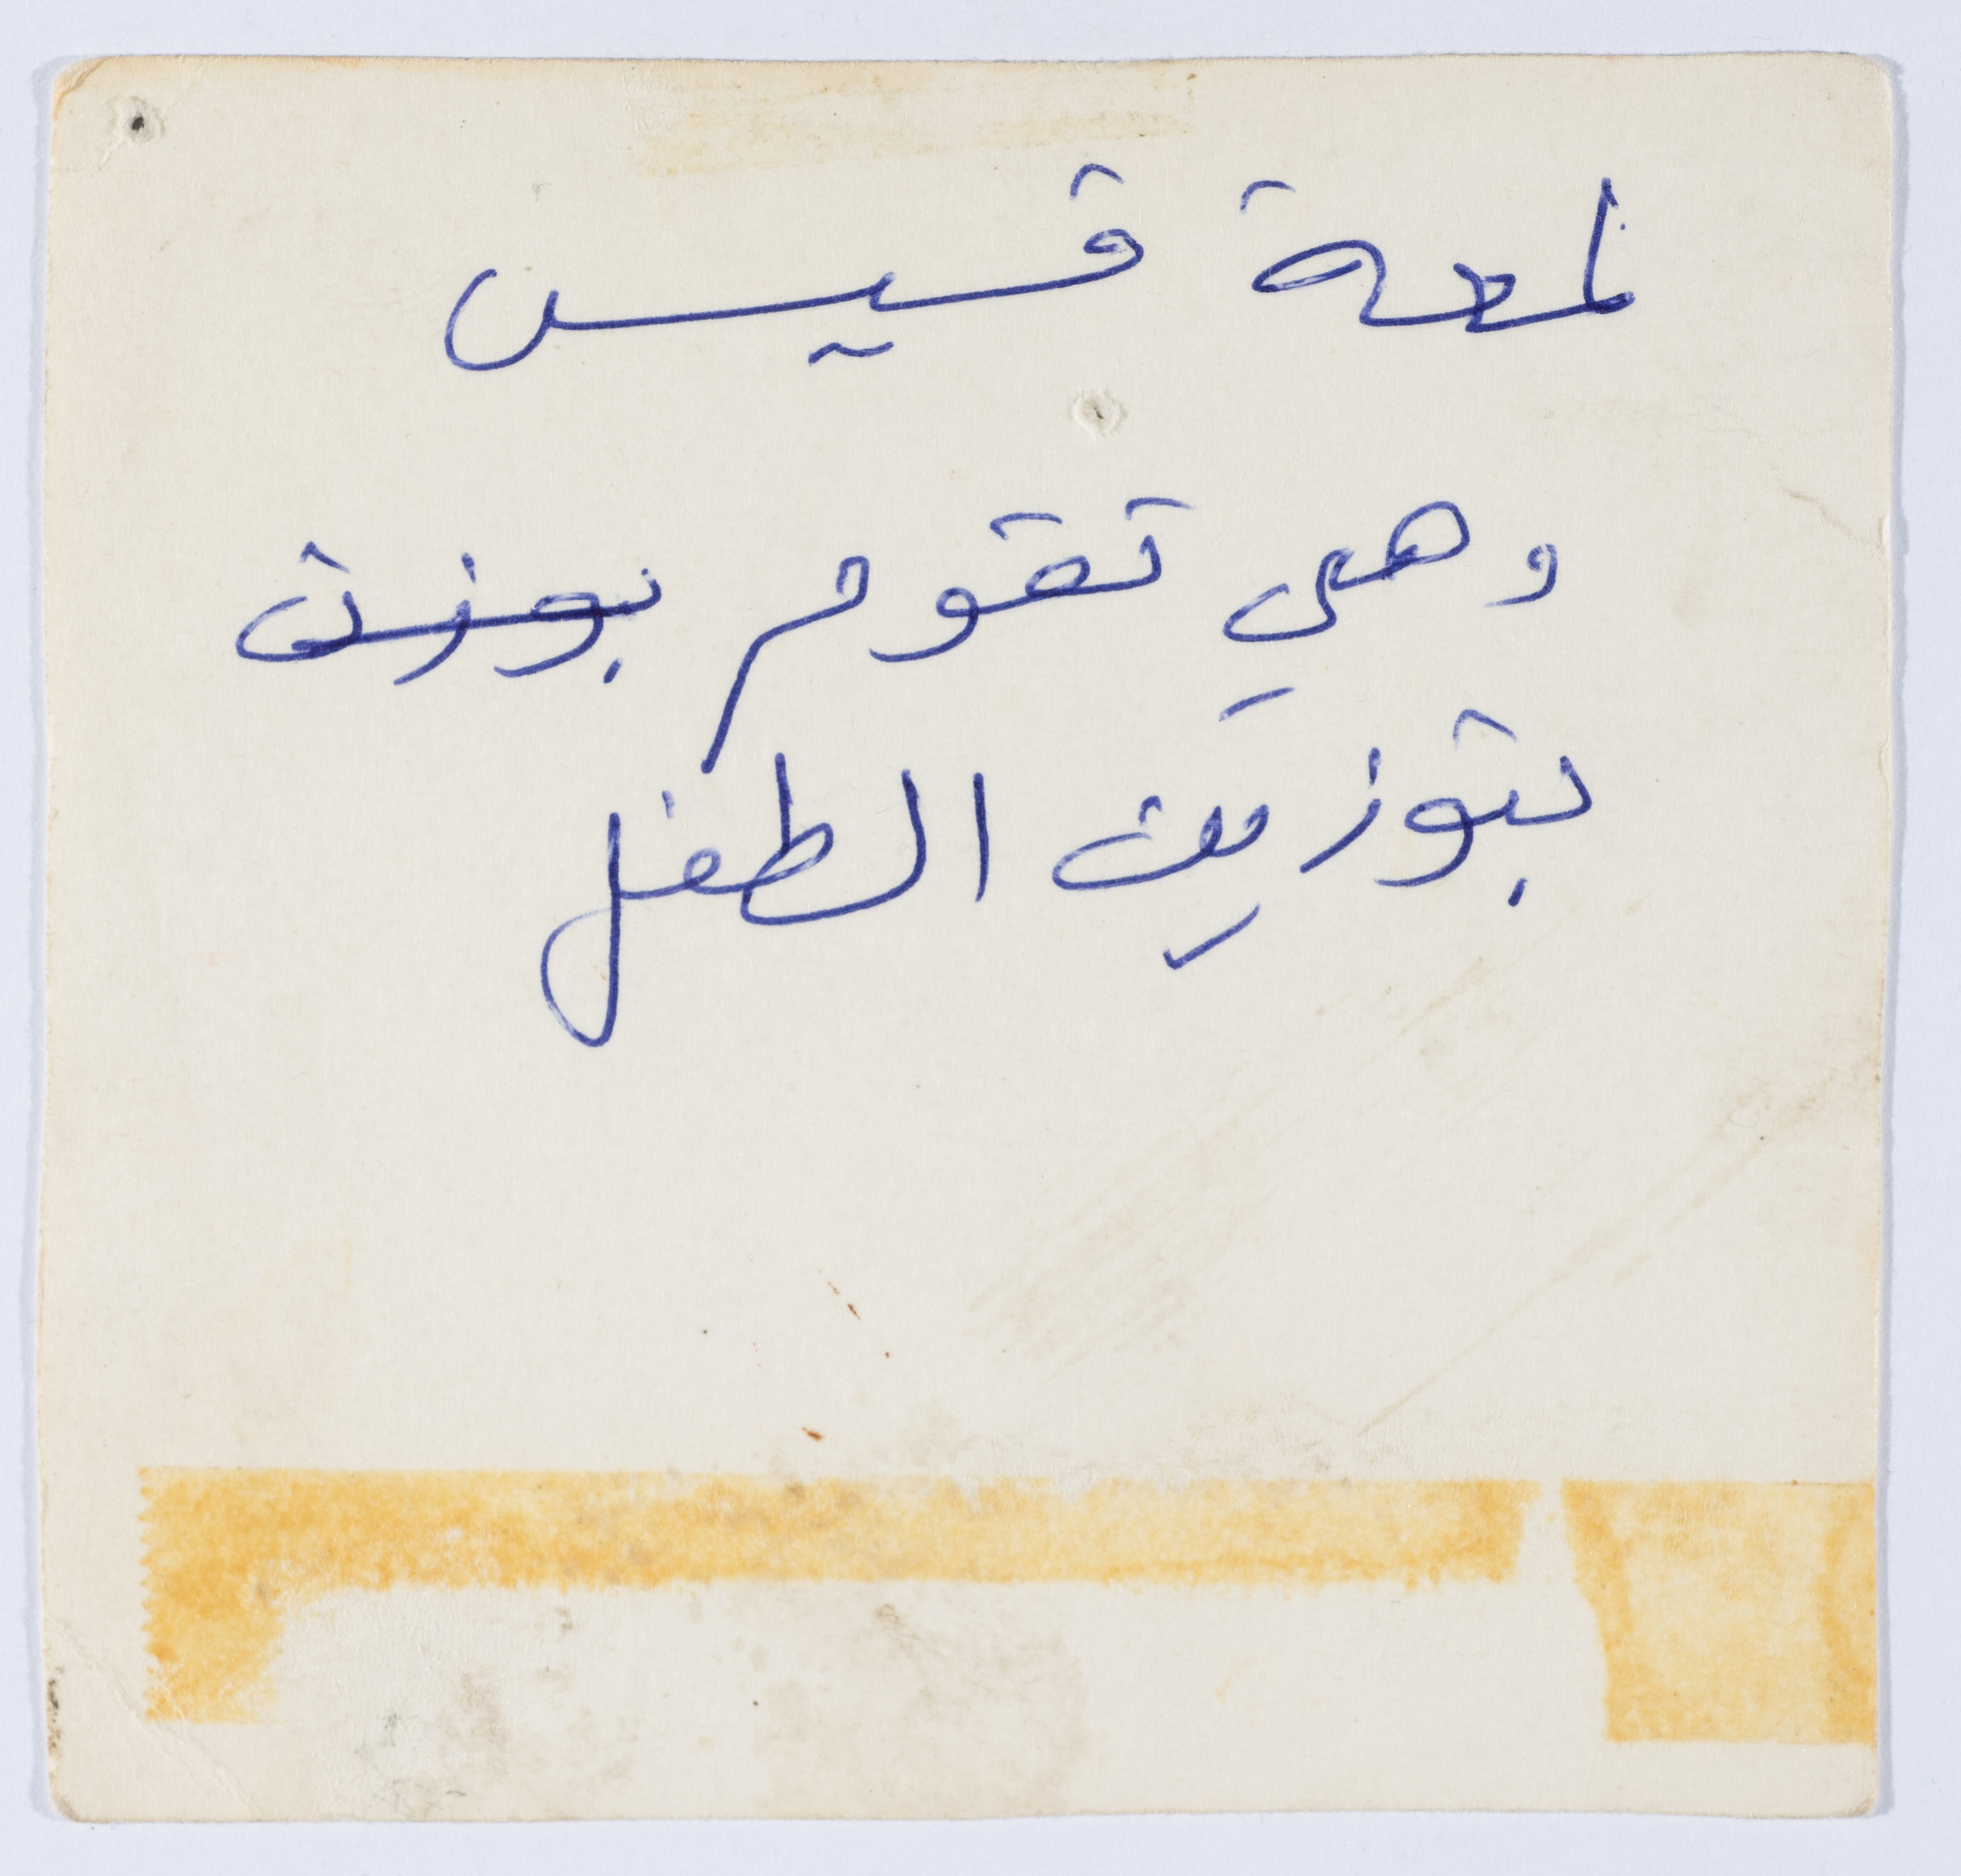 لمعة قسيس
وهي تقوم بوزن
بتوزين الطفل